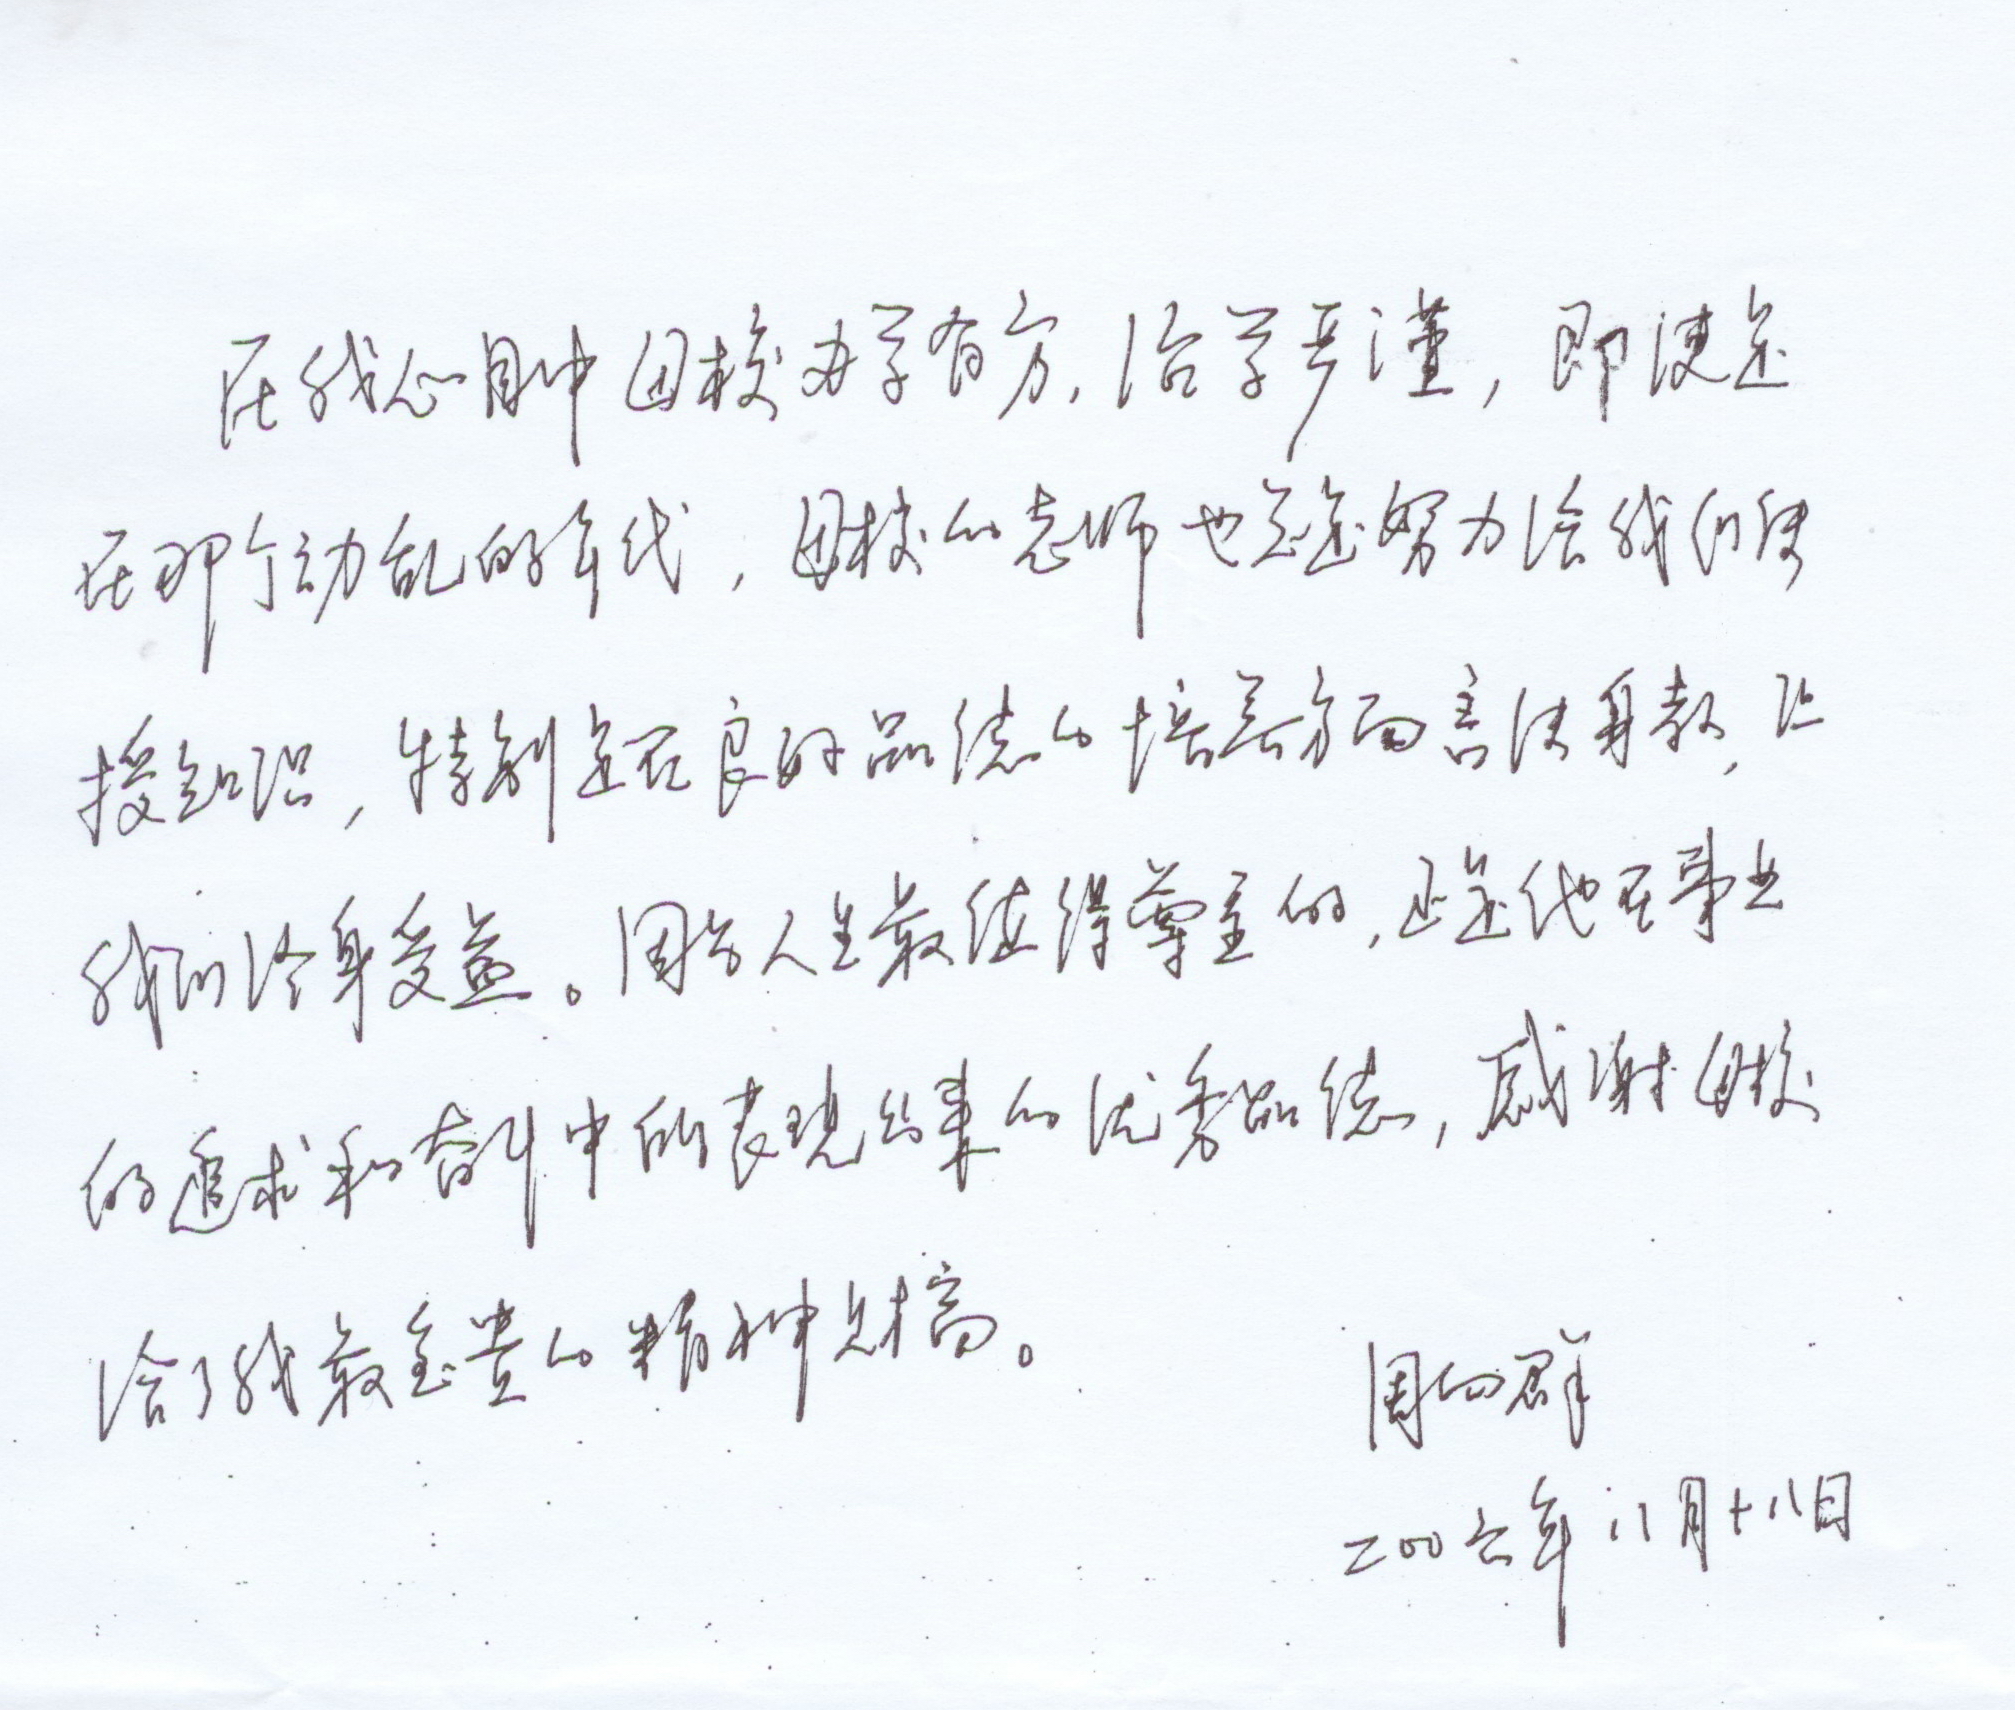 在我心目中母校办学有方,治学严谨,即使是
在那个动乱的年代,母校的老师也总是努力给我们传
授知识,特别是在良好品德的培养方面言传身教,让
我们终身受益。因为人生最值得尊重的,正是他在事业
的追求和奋斗中所表现出来的优秀品德,感谢母校
给了我最宝贵的精神财富。
周向群
二〇〇六年八月十八日